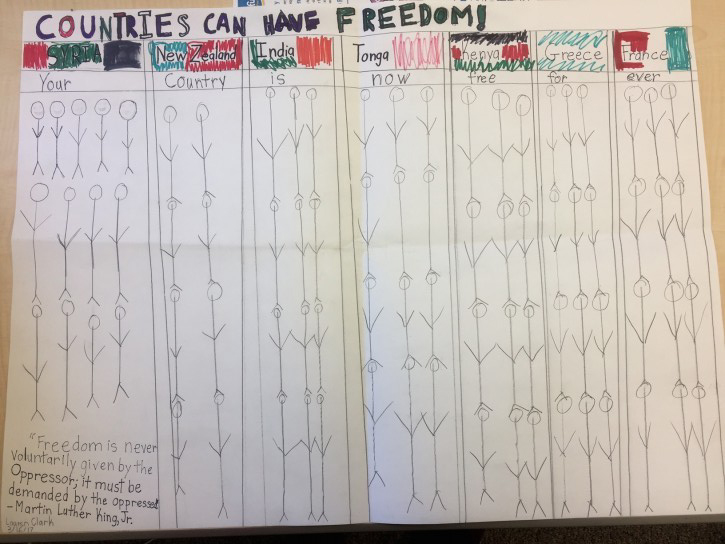 COUNTRIES CAN HAVE FREEDOM!
SYRIA New Zealand India Tonga Kenya Greece France
Your Country is now free for ever
"Freedom is never
voluntarily given by the
Oppressor; it must be
demanded by the oppressed
- Martin Luther King, Jr.
Lauren Clark